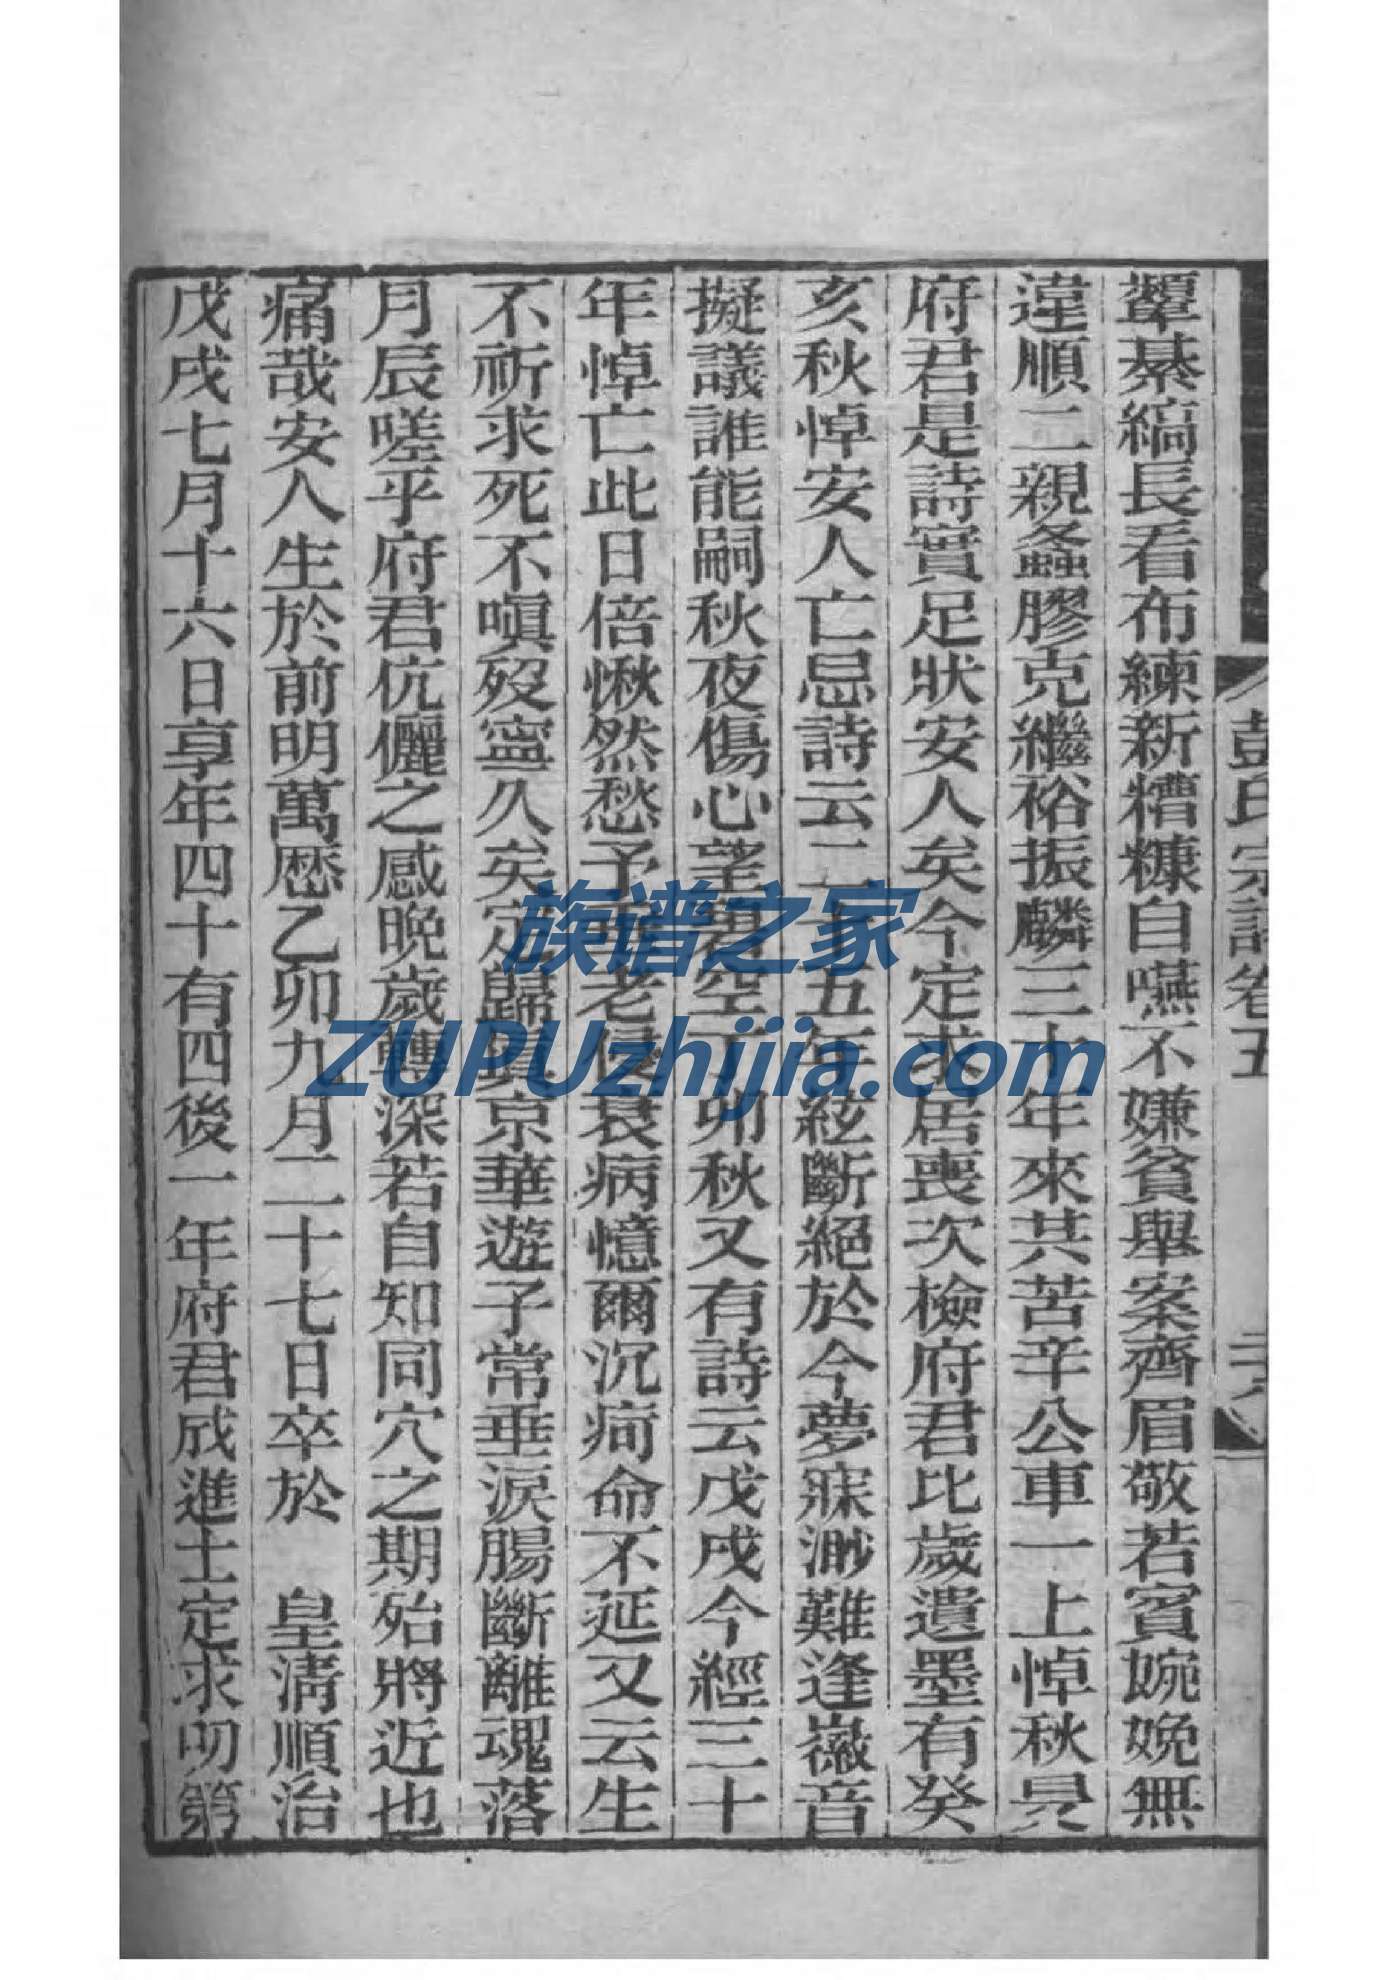 顰綦縞長看布練新糟糠自嚥不嫌貧舉案齊眉敬若賓婉娩無
違順二親螽膠克繼裕振麟三十年來共苦辛公車一上悼秋旻
府君是詩實足狀安人矣今定求居喪次檢府君比歲遺墨有癸
亥秋悼安人亡忌詩云二十五年絃斷絕於今夢寐渺難逢徽音
擬議誰能嗣秋夜傷心望碧空丁卯秋又有詩云戊戌今經三十
年悼亡此日倍愀然愁予老侵衰病憶爾沉疴命不延又云生
不祈求死不嗔歿寧久矣定歸真京華遊子常垂淚腸斷離魂落
月辰嗟乎府君伉儷之感晚歲轉深若自知同穴之期殆將近也
痛哉安人生於前明萬歷乙卯九月二十七日卒於 皇清順治
戊戌七月十六日享年四十有四後一年府君成進士定求叨第
彭氏宗譜卷五
二六
族谱之家
ZUPUzhijia.com